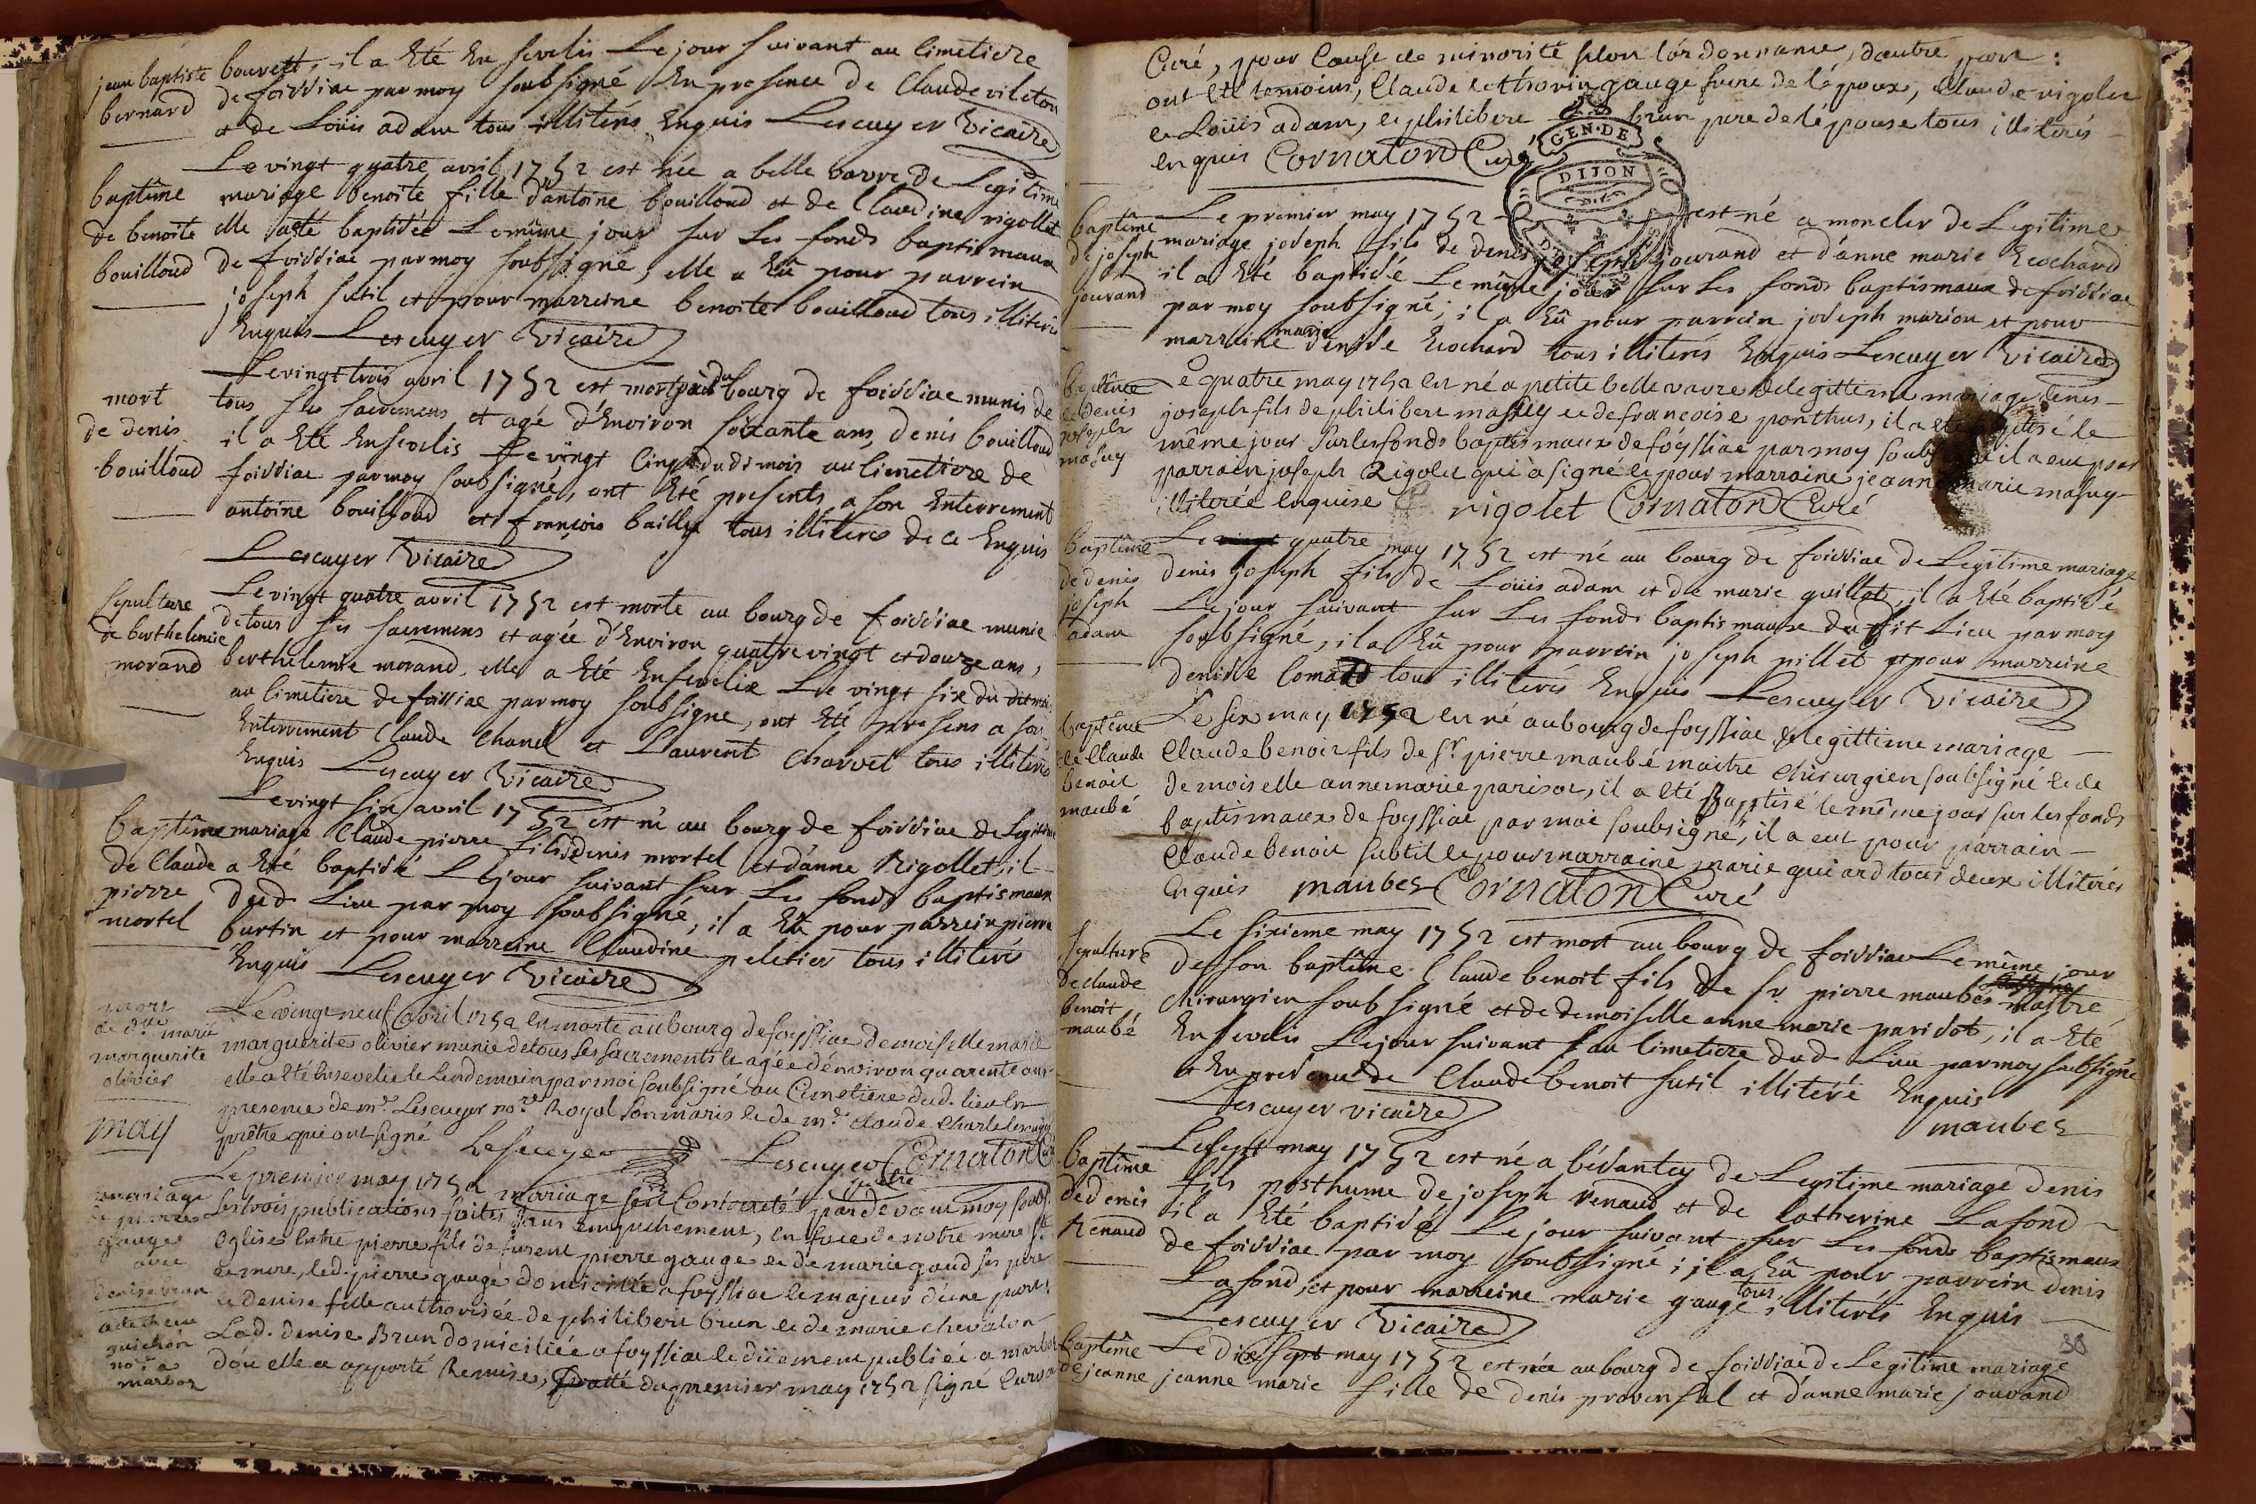 jean baptiste
bernard
bouvett, il a Eté En sevelis Le jour suivant au Cimetiere
de foissiac par moy soubsigné En presence de Claude vileton
et de Loüis adam tous illiterés Enquis Lescuyer Vicaire
baptême
de benoite
bouilloud
Le vingt quatre avril 1752 est née a belle vavre de Legitime
mariage benoite fille d'antoine bouilloud et de Claudine rigollet
elle a eté baptisée Le même jour sur Les fonds baptismaux
de foissiac par moy soubsigné, elle a Eû pour parrein
joseph sutil et pour marreine benoite bouilloud tous illiterés
Enquis Lescuyer Vicaire
mort
de denis
bouilloud
Le vingt trois avril 1752 est mort au bourg de foissiac munis de
tous ses sacremens et agé d'Environ soixante ans, denis bouilloud
il a Eté Ensevelis Le vingt Cinq dudt mois au Cimetiere de
foissiac par moy soubsigné, ont Eté presents a son Enterrement
antoine bouilloud et françois bailly tous illiteres de ce Enquis
Lescuyer Vicaire
sepulture
de berthelemie
morand
Le vingt quatre avril 1752 est morte au bourg de foissiac munie
de tous ses sacremens et agée d'Environ quatre vingt et douze ans,
berthelemie morand. elle a Eté Ensevelie Le vingt six du dt mois
au Cimetiere de foissiac par moy soubsigné, ont Eté presens a son
Enterrement Claude Chanel et Laurent Charvet tous illiterés
Enquis Lescuyer Vicaire
baptême
de Claude
pierre
mortel
Le vingt six avril 1752 est né au bourg de foissiac de Legitime
mariage Claude pierre fils denis mortel et d'anne Rigollet, il
a Eté baptisé Le jour suivant sur Les fonds baptismaux
dud. Lieu par moy soubsigné, il a Eû pour parrein pierre
burtin et pour marreine Claudine peletier tous illiterés
Enquis Lescuyer Vicaire
mort
de dlle marie
marguerite
olivier
Le vingt neuf avril 1752 est morte au bourg de foyssiac demoiselle marie
marguerite olivier munie de tous ses sacrements et agée d'environ quarente ans
elle a eté ensevelie le lendemain par moi soubsigné au Cimetiere dud. lieu en
presence de mr. Lescuyer nore Royal son maris et de mr. Claude Charle lescuyer
prêtre qui ont signé Lescuyer Lescuyer prêtre Cornaton C
may
mariage
de pierre
gauge
avec
denise brun
a
guichon
a
marboz
Le premier may 1752 mariage fut Contracté par devant moy soub.
les trois publications faites sans empechement, en face de notre mere Ste.
eglise entre pierre fils de furent pierre gauge et de marie gaud ses pere
et mere, led. pierre gauge domicilié a foyssiac le majeur d'une part,
et denise fille authorisée de philibert brun et de marie chevalon
Lad. denise Brun domiciliée a foyssiac et düement publiée a marboz
d'ou elle a apporté Remise, datté du premier may 1752 signé
Curé, pour Cause de minorité selon l'ordonnance, d'autre part:
ont été temoins, Claude gauge frere de l'époux, Claude rigolet
et Loüis adam, et philibert brun pere de l'épouse tous illiterés
enquis Cornaton Curé
GEN. DE
DIJON
baptême
de joseph
jouvand
Le premier may 1752 est né a moncler de Legitime
mariage joseph fils de denis jouvand et d'anne marie Ecochard
il a Eté baptisé Le même jour sur Les fonds baptismaux de foissiac
par moy soubsigné; il a Eû pour parrein joseph marion et pour
marreine marie denise Ecochard tous illiterés Enquis Lescuyer Vicaire
baptême
de denis
joseph
masuy
Le quatre may 1752 est né a petite belle vavre de legittime mariage denis
joseph fils de philibert masuy et de francoise ponthus, il a eté baptisé le
même jour sur les fonds baptismaux de foyssiac par moy soubsigné il a eu pour
parrain joseph Rigolet qui a signé et pour marraine jeanne marie masuy
illiterée enquise rigolet Cornaton Curé
baptême
de denis
joseph
adam
Le quatre may 1752 est né au bourg de foissiac de Legitime mariage
denis joseph fils de Loüis adam et de marie guillot, il a Eté baptisé
Le jour suivant sur Les fonds baptismaux dudit Lieu par moy
soubsigné, il a Eû pour parrein joseph pillet et pour marreine
denise tous illiterés Enquis Lescuyer Vicaire
baptême
de Claude
benoit
maubé
Le six may 1752 est né au bourg de foyssiac de legittime mariage
Claude benoit fils de sr. pierre maubé maitre chirurgien soubsigné et de
demoiselle anne marie parisot, il a eté Baptisé le même jour sur les fonds
baptismaux de foyssiac par moi soubsigné, il a eut pour parrain
Claude benoit subtil et pour marraine marie guiard tous deux illiterés
Enquis maubez Cornaton Curé
sepulture
de claude
benoit
maubé
Le sixieme may 1752 est mort au bourg de foissiac Le même jour
de son baptême Claude benoit fils de sr. pierre maubés maitre
chirurgien soubsigné et de demoiselle anne marie parisot, il a Eté
Ensevelis Le jour suivant au Cimetiere dud. Lieu par moy soubsigné
En presence de Claude benoit sutil illiteré Enquis
Lescuyer vicaire maubez
baptême
de denis
Renaud
Le sept may 1752 est né a bévantey de Legitime mariage denis
fils posthume de joseph renaud et de Catherine Lafond
il a Eté baptisé Le jour suivant sur Les fonds baptismaux
de foissiac par moy soubsigné; il a Eû pour parrein denis
Lafond, et pour marreine marie gauge tous illiterés Enquis
Lescuyer Vicaire
38
baptême
de jeanne
Le dix sept may 1752 est née au bourg de foissiac de Legitime mariage
jeanne marie fille de denis provensal et d'anne marie jouvand